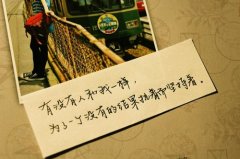 有没有人和我一样，
为了一个没有的结果执着和坚持着。